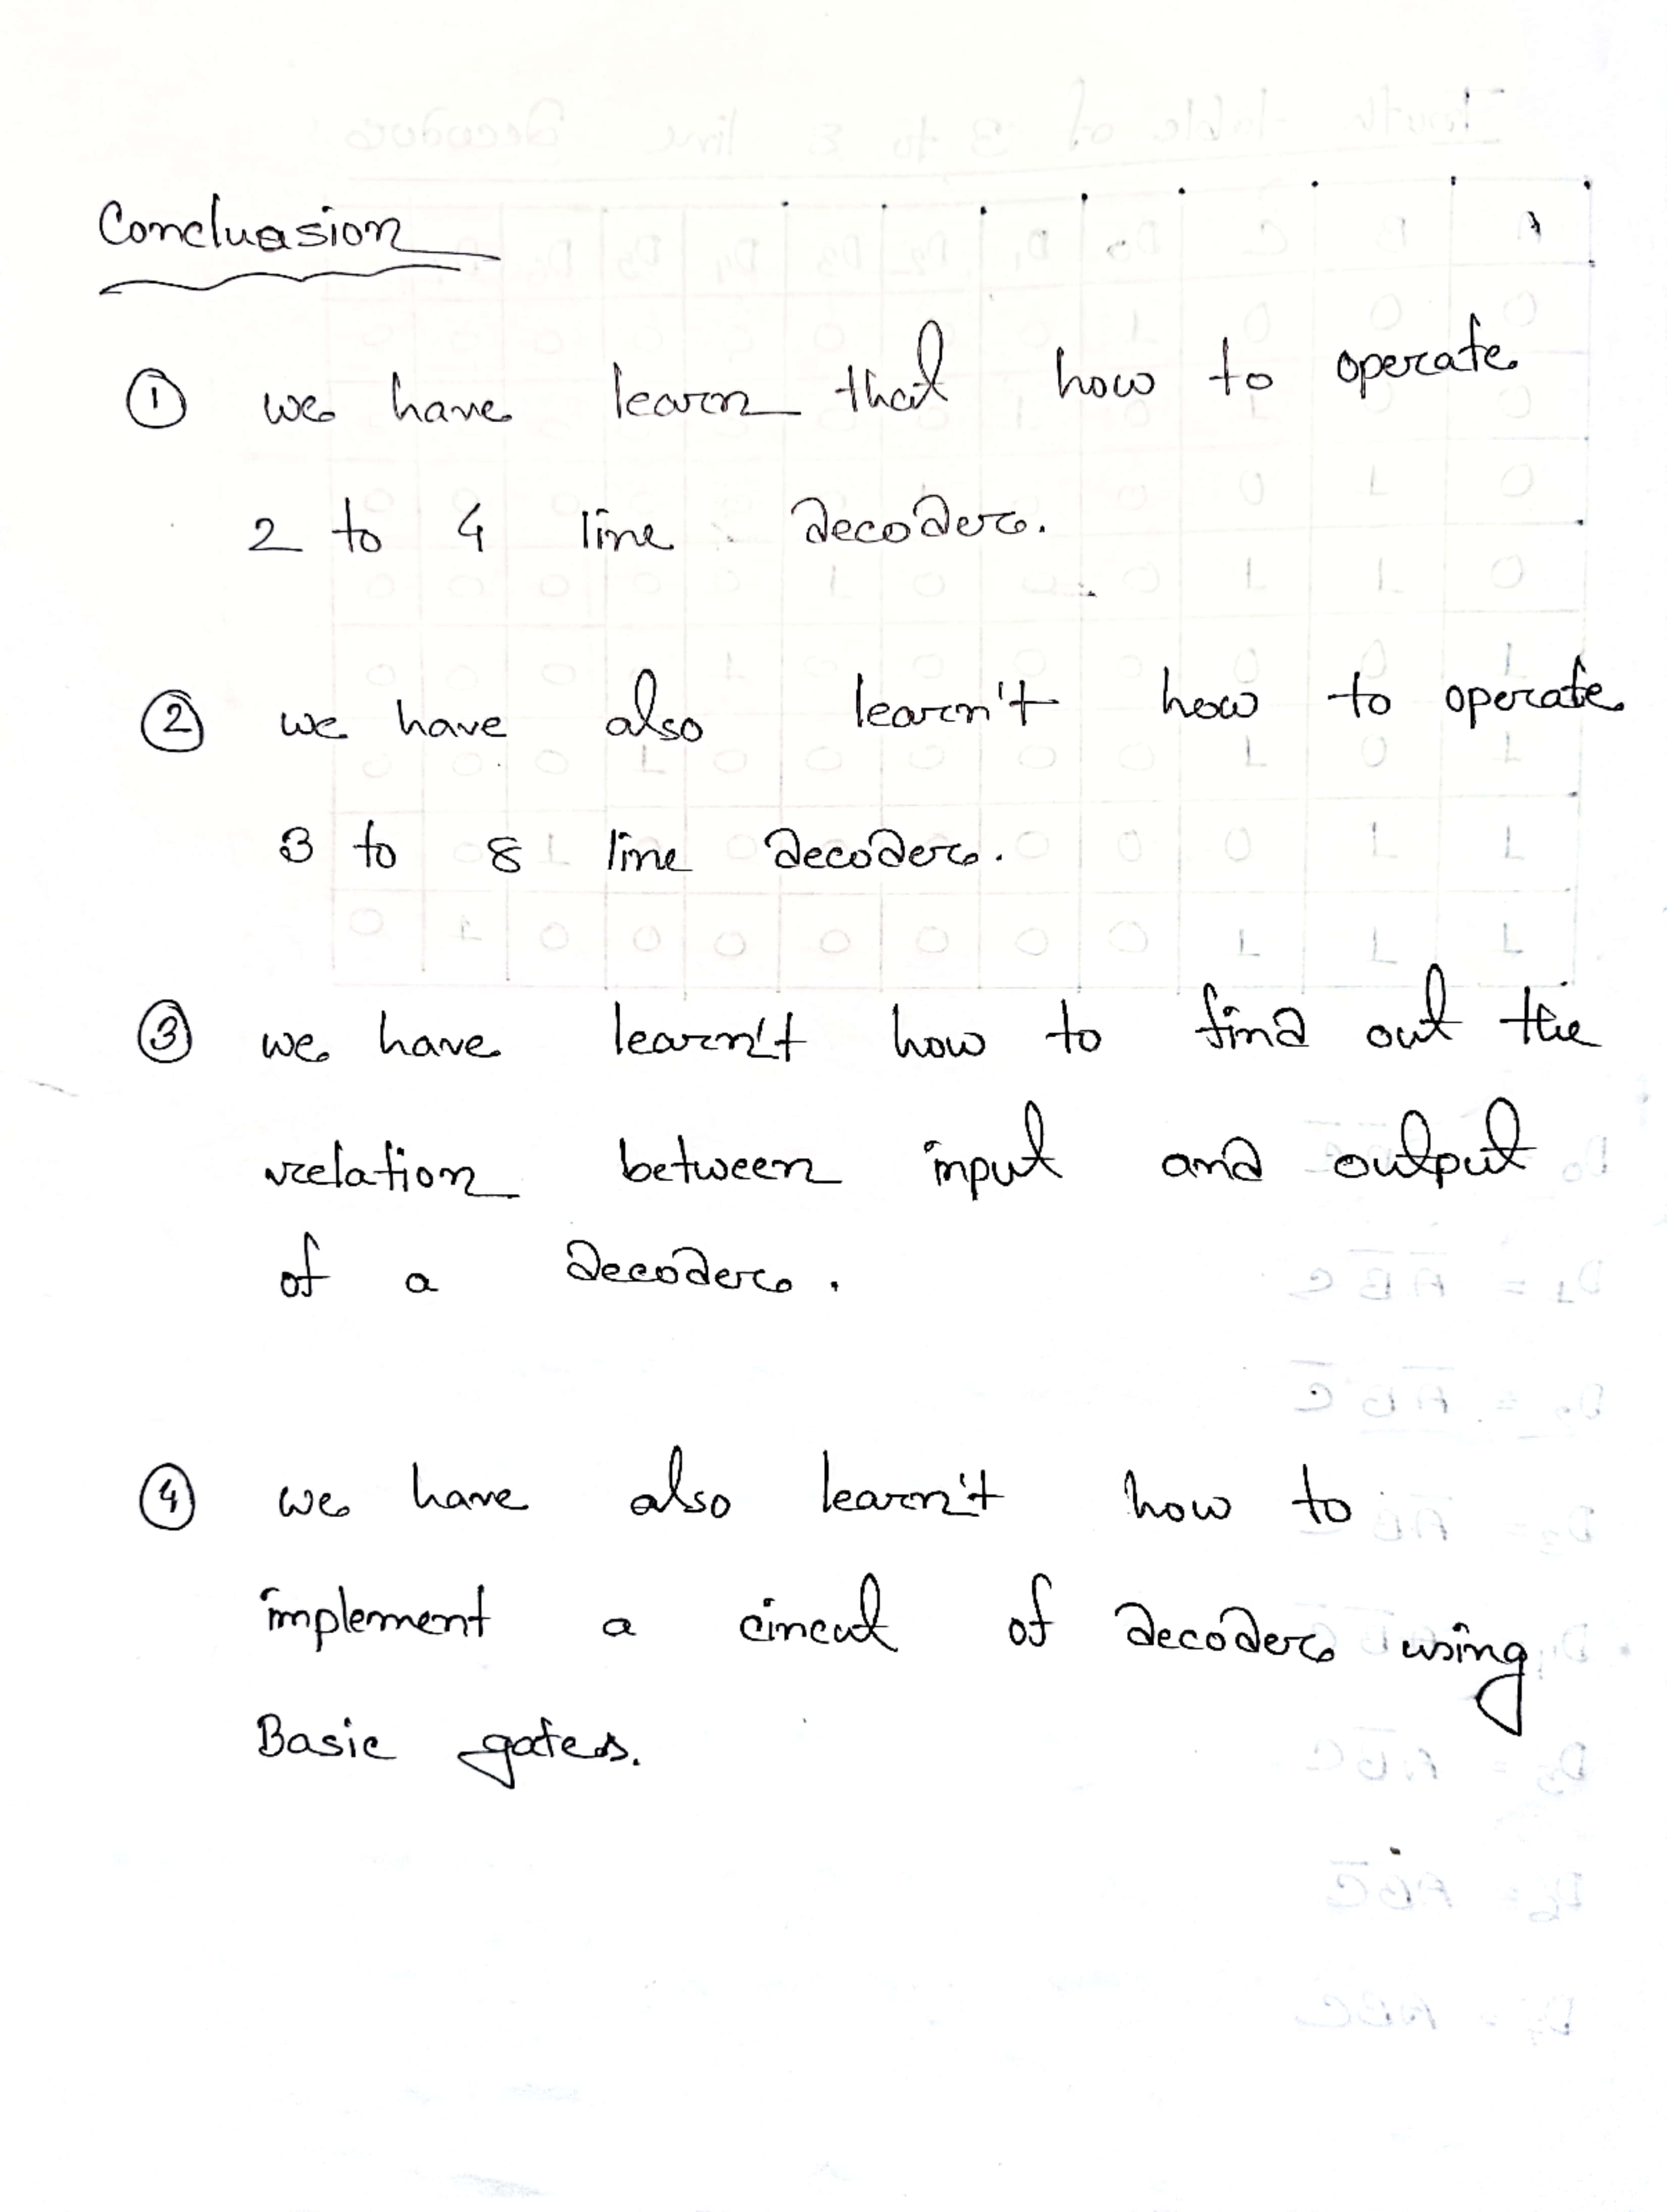 Concluasion
① we have learn that how to operate
2 to 4 line decoder.
② we have also learn't how to operate
3 to 8 line decoder.
③ we have learn't how to find out the
relation between input and output
of a decoder.
④ we have also learn't how to
implement a circut of decoder using
Basic gates.